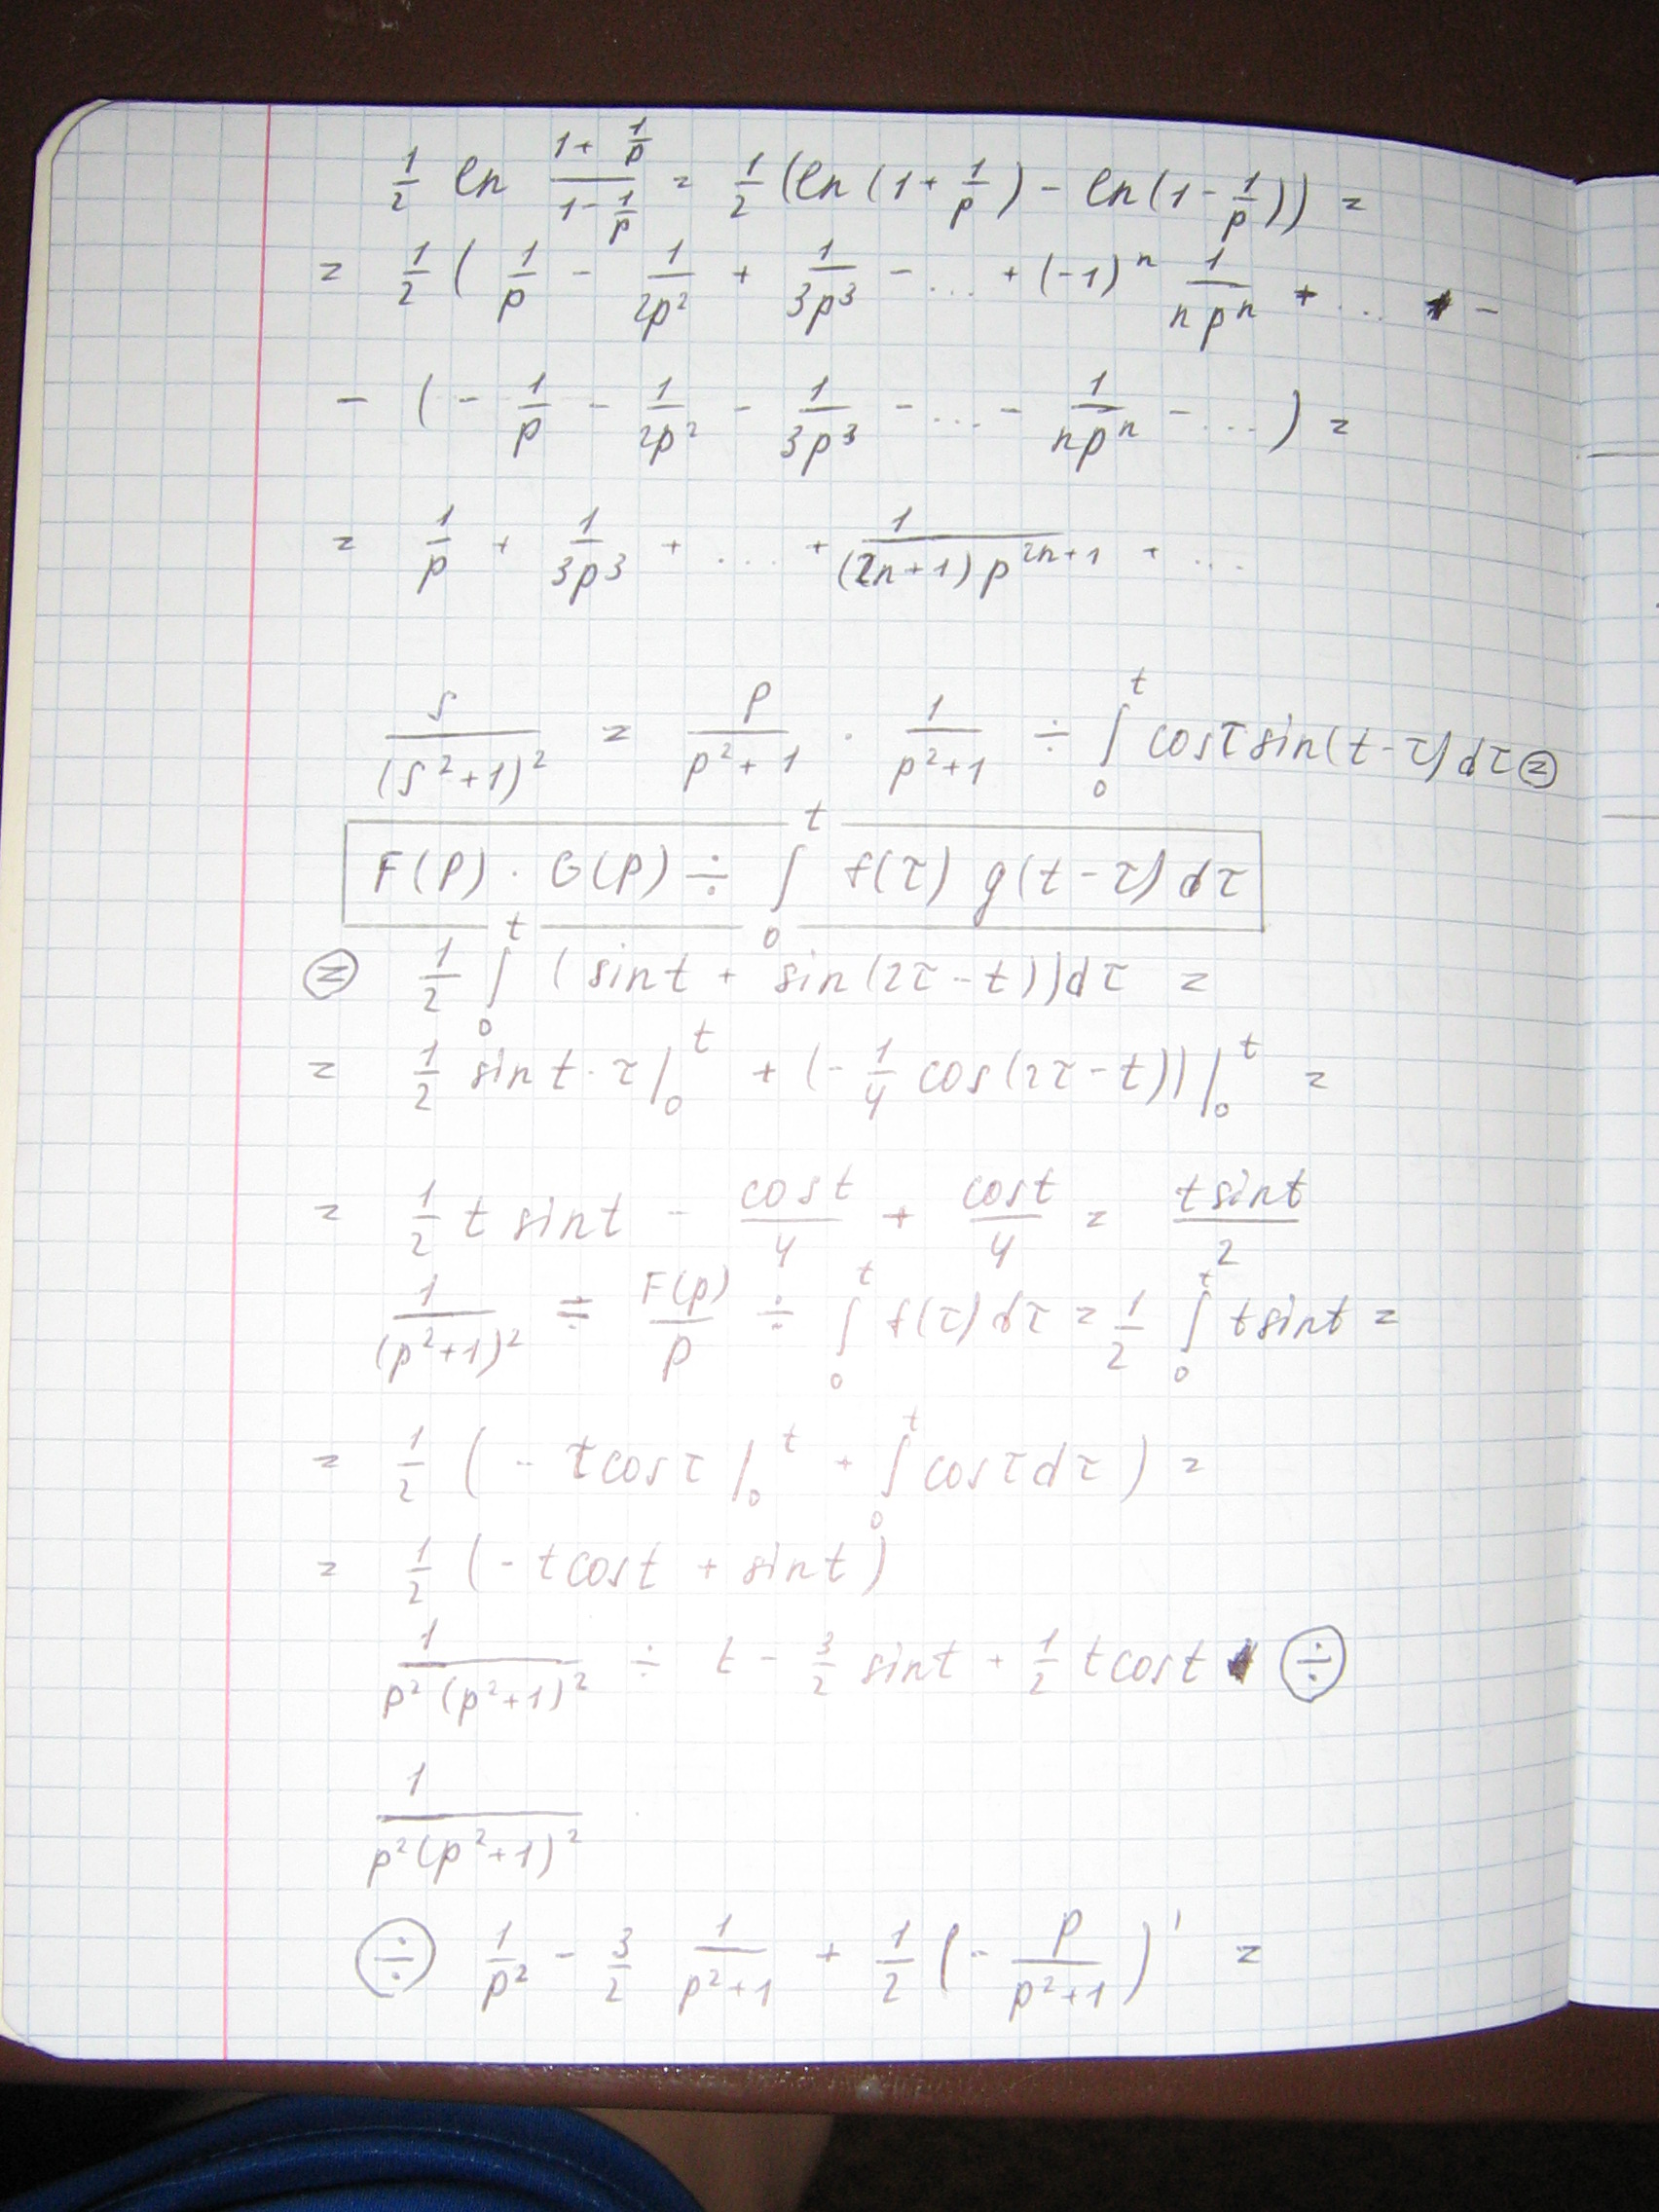 1/2 ln (1 + 1/p)/(1 - 1/p) = 1/2 (ln(1 + 1/p) - ln(1 - 1/p)) =
= 1/2 ( 1/p - 1/2p² + 1/3p³ - ... + (-1)ⁿ 1/npⁿ + ... -
- ( - 1/p - 1/2p² - 1/3p³ - ... - 1/npⁿ - ... ) =
= 1/p + 1/3p³ + ... + 1/(2n+1)p²ⁿ⁺¹ + ...
s/(s²+1)² = p/(p²+1) · 1/(p²+1) ÷ ∫₀ᵗ cosτ sin(t-τ)dτ ⊜
F(p) · G(p) ÷ ∫₀ᵗ f(τ) g(t-τ)dτ
⊜ 1/2 ∫₀ᵗ (sint + sin(2τ-t))dτ =
= 1/2 sint·τ|₀ᵗ + (-1/4 cos(2τ-t))|₀ᵗ =
= 1/2 t sint - cost/4 + cost/4 = tsint/2
1/(p²+1)² ÷ F(p)/p ÷ ∫₀ᵗ f(τ)dτ = 1/2 ∫₀ᵗ tsint =
= 1/2 ( - τcosτ|₀ᵗ + ∫₀ᵗ cosτdτ ) =
= 1/2 (-tcost + sint)
1/p²(p²+1)² ÷ t - 3/2 sint + 1/2 tcost ÷
1/p²(p²+1)²
÷ 1/p² - 3/2 1/(p²+1) + 1/2 (- p/(p²+1))' =